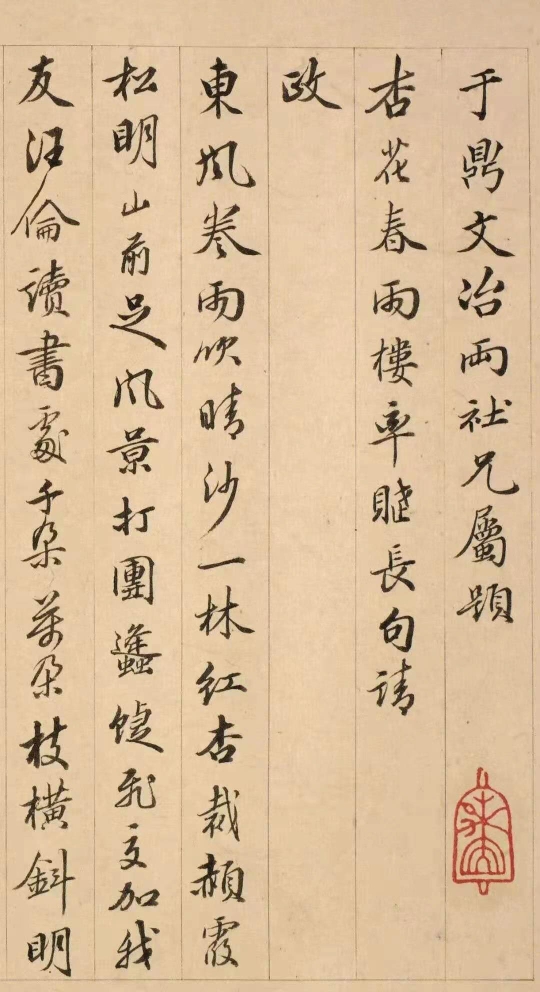 于鼎文冶両社兄屬題
杏花春雨樓率賦長句請
政
東風卷雨吹晴沙一林紅杏裁赬霞
松明山前足風景打團蠭蜨飛交加我
友汪倫讀書處千朵萬朵枝橫斜明